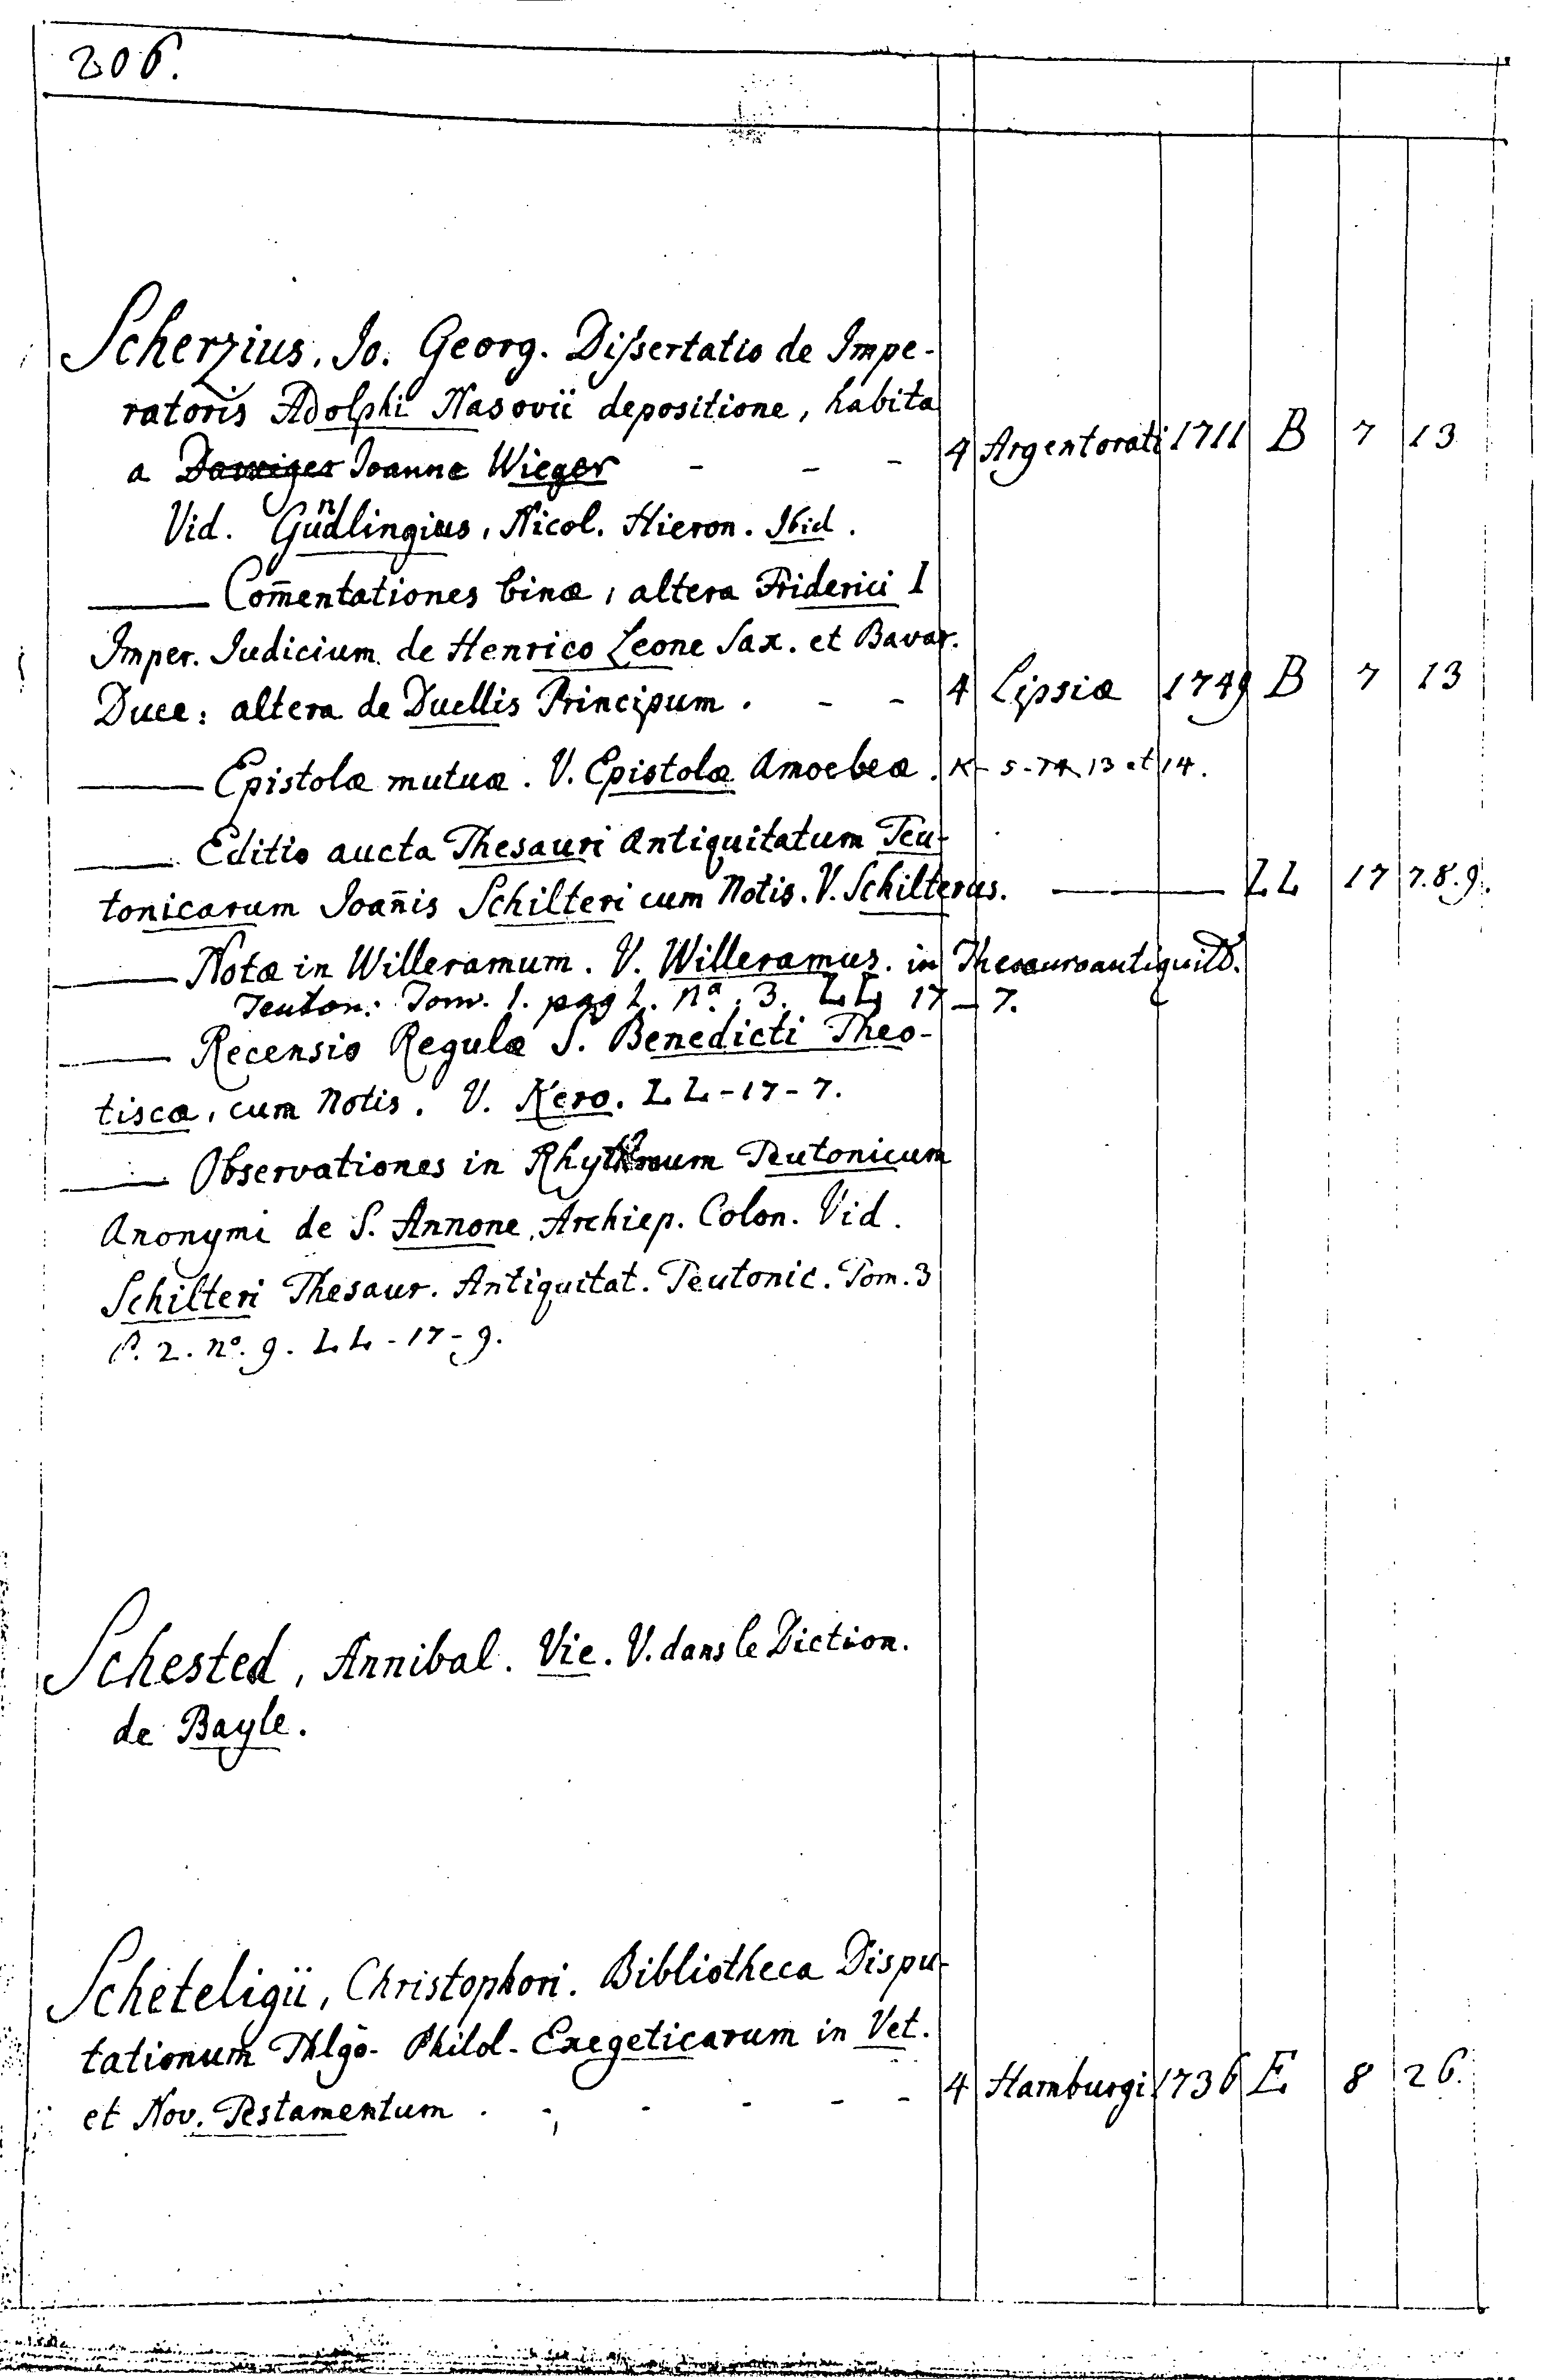 206.
Scherzius, Jo. Georg. Dissertatio de Impe-
ratoris Adolphi Nasovii depositione, habita
a Joanne Wieger - - - 4 Argentorati 1711 B 7 13
Vid. Gundlingius, Nicol. Hieron. Ibid.
—— Com̄entationes binæ, altera Friderici I
Imper. Judicium de Henrico Leone Sax. et Bavar.
Duce: altera de Duellis Principum. - - 4 Lipsiæ 1749 B 7 13
—— Epistolæ mutuæ. V. Epistolæ Amoebeæ. K- 5- 13 et 14.
—— Editio aucta Thesauri Antiquitatum Teu-
tonicarum Joan̄is Schilteri cum Notis. V. Schilterus. —— LL 17 7.8.9.
—— Notæ in Willeramum. V. Willeramus. in Thesauro antiquitt.
Teuton: Tom. 1. pag 2. nº. 3. LL 17-7.
—— Recensio Regulæ S. Benedicti Theo-
tiscæ, cum Notis. V. Kero. LL-17-7.
—— Observationes in Rhythmum Teutonicum
Anonymi de S. Annone, Archiep. Colon. Vid.
Schilteri Thesaur. Antiquitat. Teutonic. Tom. 3
P. 2. nº. 9. LL-17-9.
Schested, Annibal. Vie. V. dans le Diction.
de Bayle.
Scheteligii, Christophori. Bibliotheca Dispu-
tationum Thlgō- Philol- Exegeticarum in Vet.
et Nov. Testamentum . - - - - - 4 Hamburgi 1736 E 8 26.